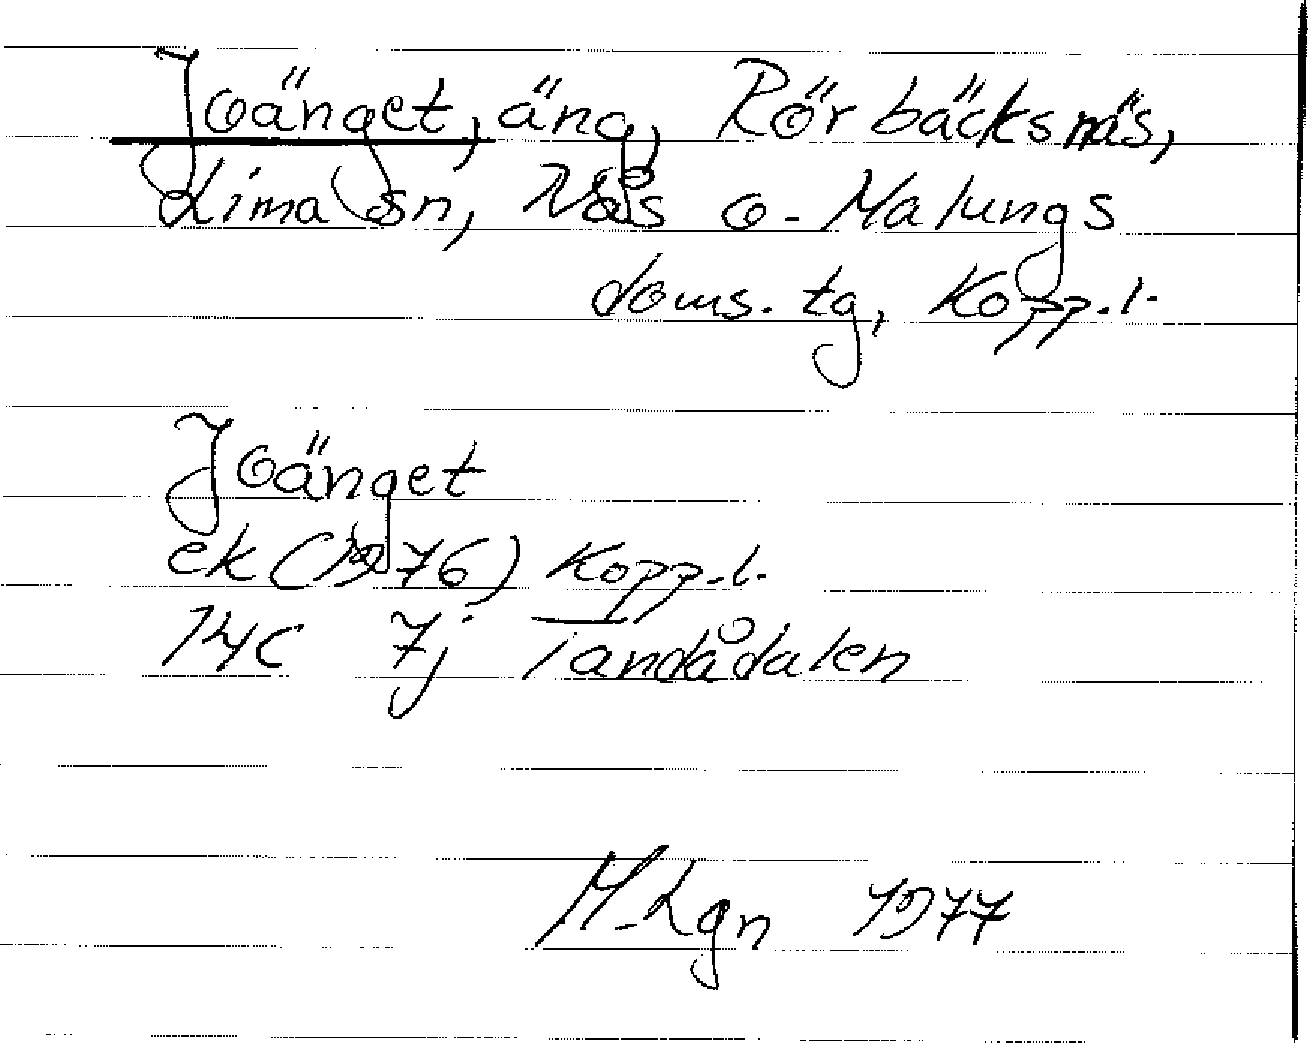 Joänget, äng, Rörbäcksnäs,
Lima sn, Nås o. Malungs
doms. tg, Kopp. l.
Joänget
ek (1976) Kopp. l.
14c 7j Tandådalen
M. Lgn 1977